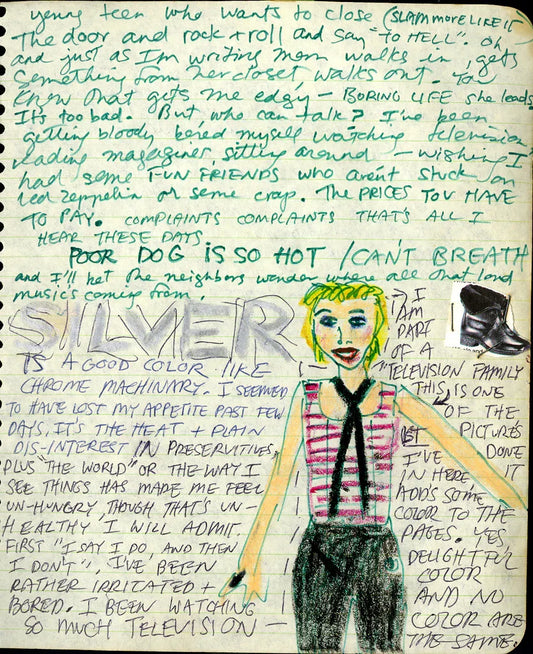 young teen who wants to close (SLAM more LIKE IT
The door and rock + roll and say "TO HELL". Oh
and just as I'm writing mom walks in, gets
something from her closet, walks out. You
know that gets me edgy – BORING LIFE she leads
It's too bad. But, who can talk? I've been
getting bloody bored myself watching television
reading magazines, sitting around – wishing I
had some FUN FRIENDS who aren't stuck on
Led Zeppelin or some crap. The PRICES YOU HAVE
TO PAY. COMPLAINTS COMPLAINTS THAT'S ALL I
HEAR THESE DAYS
POOR DOG iS SO HOT / CAN'T BREATH
and I'll bet the neighbors wonder where all that loud
music's coming from.
SILVER
IS A GOOD COLOR LIKE
CHROME MACHINARY. I SEEMED
TO HAVE LOST MY APPETITE PAST FEW
DAYS, IT'S THE HEAT + PLAIN
DIS-INTEREST IN PRESERVITIVES,
PLUS "THE WORLD" OR THE WAY I
SEE THINGS HAS MADE ME FEEL
UN-HUNGRY THOUGH THAT'S UN-
HEALTHY I WILL ADMIT.
FIRST "I SAY I DO, AND THEN
I DON'T", I'VE BEEN
RATHER IRRITATED +
BORED. I BEEN WATCHING
SO MUCH TELEVISION –
I
AM
PART
OF A
TELEVISION FAMILY
THIS IS ONE
OF THE
PICTURES
I'VE DONE
IN HERE, IT
ADDS SOME
COLOR TO THE
PAGES. YES,
DELIGHTFUL
COLOR
AND NO
COLOR ARE
THE SAME.